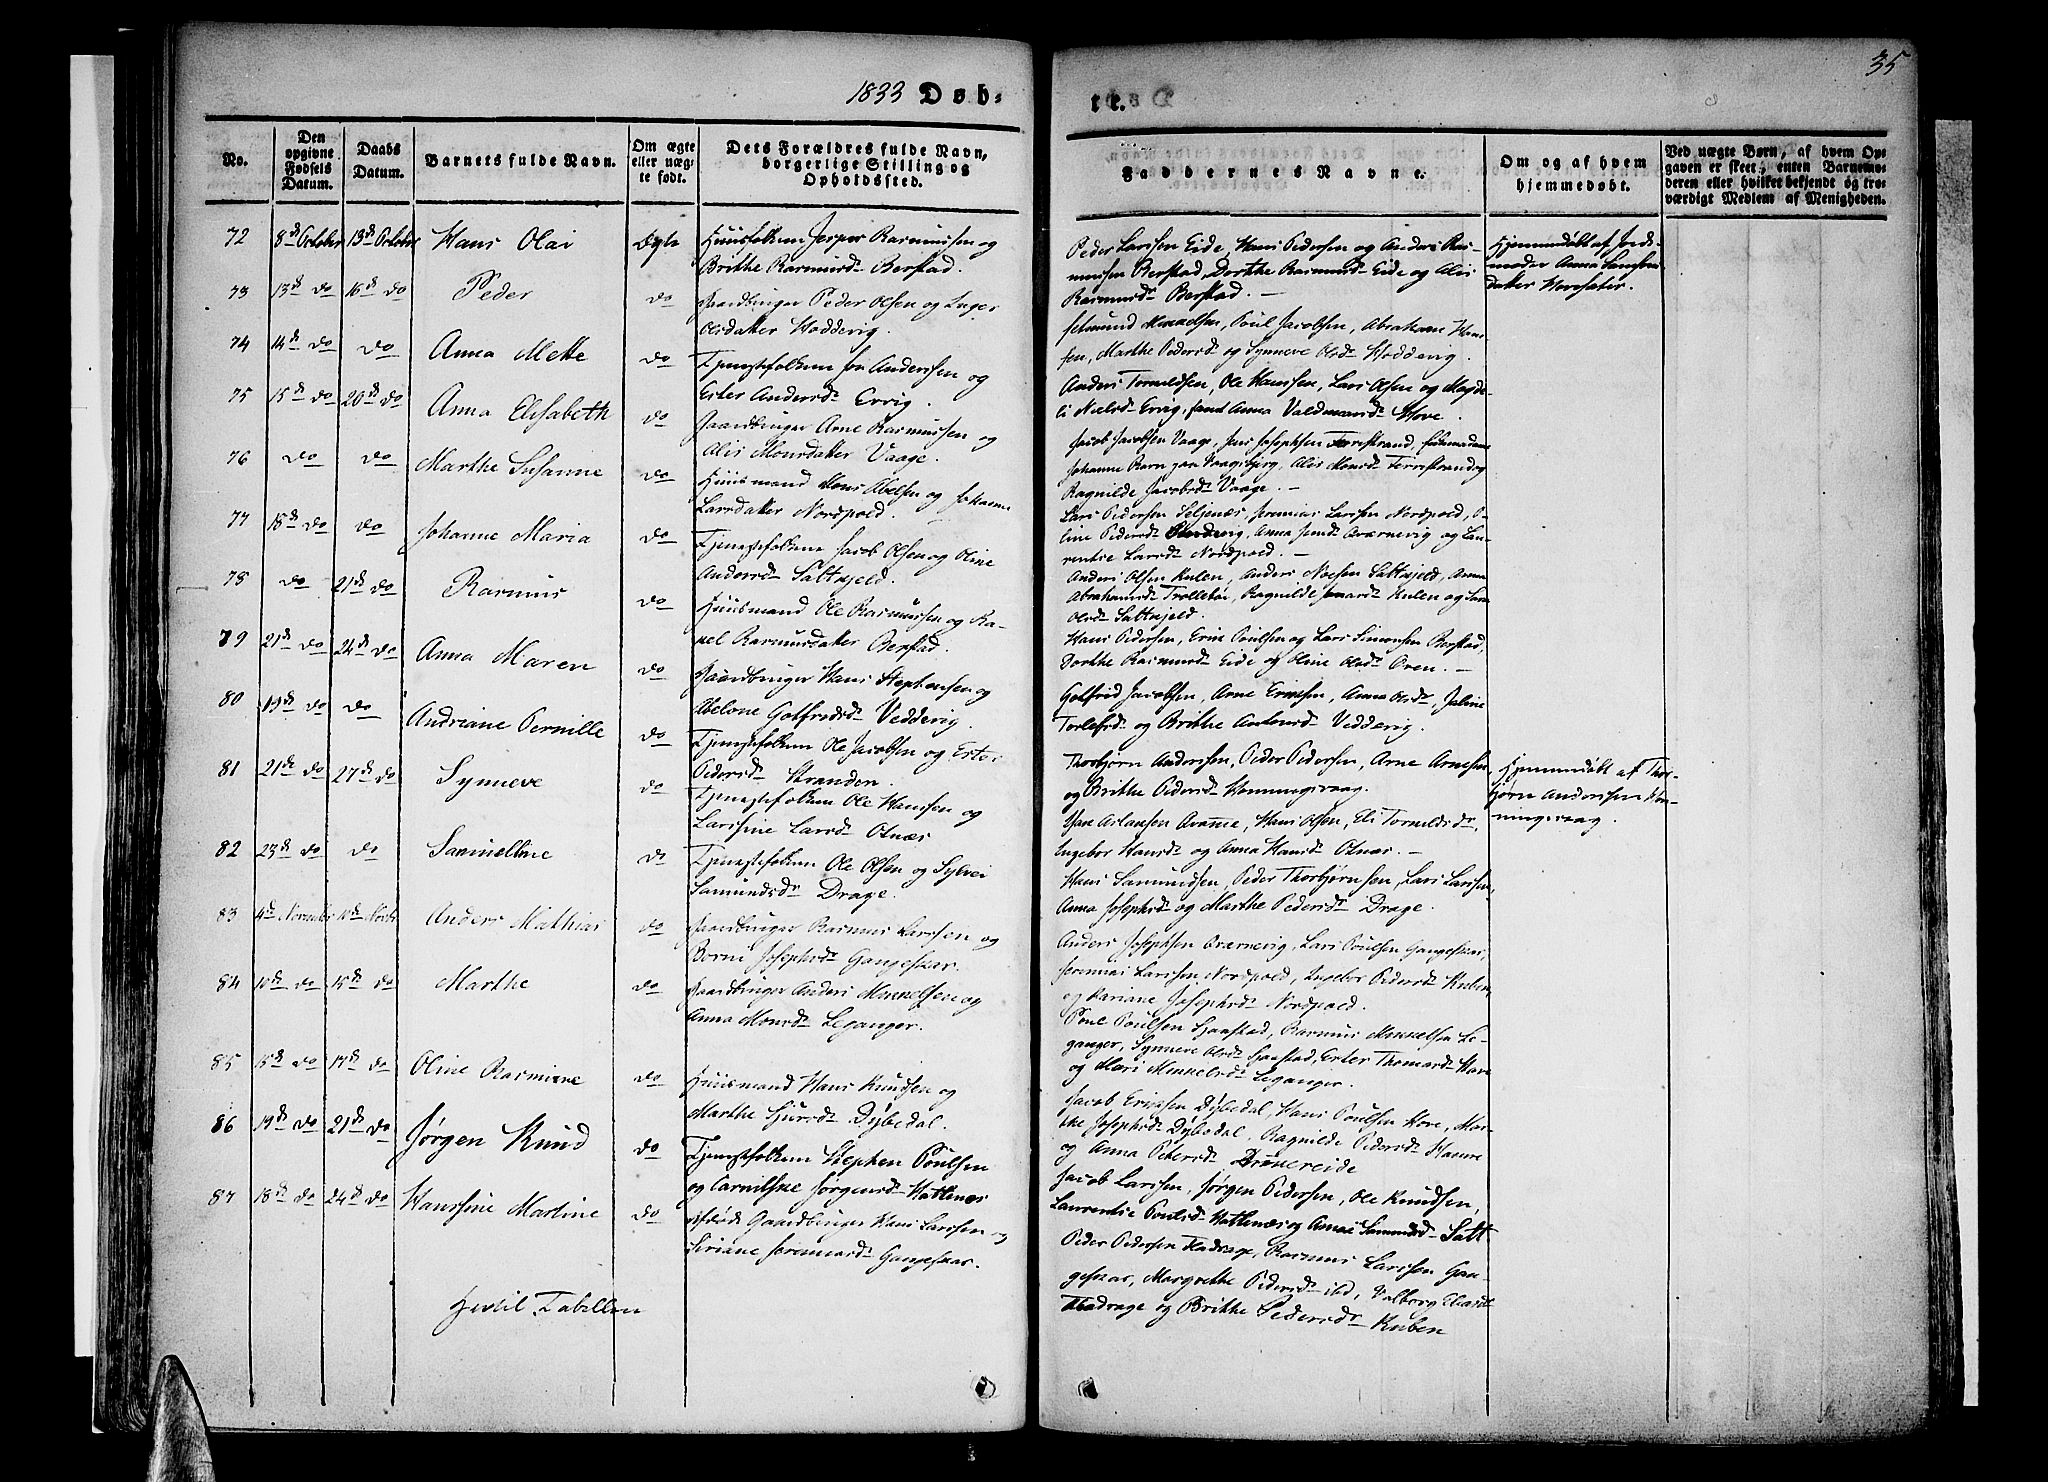 35
1833 Døb-
te.
No.
Den opgivne Fødsels Datum.
Daabs Datum.
Barnets fulde Navn.
Om ægte eller uægte født.
Dets Forældres fulde Navn, borgerlige Stilling og Opholdssted.
Faddernes Navne.
Om og af hvem hjemmedøbt.
Ved uægte Børn, af hvem Opgaven er skeet; enten Barnemoderen eller hvilket bekjendt og troværdigt Medlem af Menigheden.
72 8de October 13de October Hans Olai Ægte Huusfolkene Jesper Rasmussen og
Brithe Rasmusdr Berstad.
Peder Larssen Eide, Hans Pedersen og Anders Ras-
mussen Berstad, Dorthe Rasmusdr Eide og Alis
Rasmusdr Berstad. —
Hjemmedøbt af Jord-
moder Anna
datter Hovesæter.
73 13de do 16de do Peder do Gaardbruger Peder Olsen og Inger
Olsdatter Hoddevig.
Mikkelsen, Poul Jacobsen, Abraham Han-
sen, Marthe Pedersdr og Synneve Olsdr Hoddevig.
74 14de do do Anna Mette do Tjenestfolkene Andersen og
Ester Andersdr Ervig.
Anders Tornildsen, Ole Hanssen, Lars Olsen og Magde-
li Nielsdr Ervig, samt Anna Valdmansdr Hove.
75 15de do 20de do Anna Elisabeth do Gaardbruger Arne Rasmussen og
Alis Monsdatter Vaage.
Jacob Jacobsen Vaage, Jens Josephsen
Johanne Ravn paa Vaagsbjerg, Alis Monsdr
Ragnilde Jacobsdr Vaage. —
76 do do Marthe Susanne do Huusmand Mons Abelsen og Johanne
Larsdatter Nordpold.
Lars Pedersen Seljenæs, Jeremias Larssen Nordpold, O-
line Pedersdr Anna og Lau-
rentse Larsdr Nordpold. —
77 18de do do Johanne Maria do Tjenestfolkene Jacob Olsen og Oline
Andersdr Saltkjeld.
Anders Olsen Kulen, Anders Saltkjeld, Anna
Abrahamsdr Trollebøe, Ragnilde Kulen og
Olsdr Saltkjeld.
78 do 21de do Rasmus do Huusmand Ole Rasmussen og Ra-
kel Rasmusdatter Berstad.
Hans Pedersen, Erik Poulsen og Lars Simonsen Berstad,
Dorthe Rasmusdr Eide og Oline Olsdr Oren. —
79 21de do 24de do Anna Maren do Gaardbruger Hans Stephensen og
Abelone Gotfredsdr Vedderig.
Gotfred Jacobsen, Arne Erixsen, Anna Olsdr,
og Brithe Vedderig.
80 19de do do Andriane Pernille do Tjenestfolkene Ole Jacobsen og Ester
Pedersdr Stranden.
Thorbjørn Anderssen, Peder Pedersen, Arne Arnesen,
og Brithe Pedersdr Honningsvaag.
Hjemmedøbt af Thor-
bjørn Anderssen Hon-
ningsvaag.
81 21de do 27de do Synneve do Tjenestfolkene Ole Hanssen og
Larssine Larsdr Otnæs
Hans Olsen, Eli
Ingebor Hansdr og Anna Hansdr Otnæs. —
82 23de do do Samueline do Tjenestfolkene Ole Olsen og Sylvei
Samundsdr Drage.
Hans Samundsen, Peder Thorbjørnsen, Lars Larssen,
Anna Josephsdr og Marthe Pedersdr Drage.
83 4de November 10de Novbr Anders Mathias do Gaardbruger Rasmus Larssen og
Josephsdr Gangeskar.
Anders Josephsen Lars Poulsen Gangeskar,
Jeremias Larssen Nordpold, Ingebor Pedersdr Kuben,
og Josephsdr Nordpold.
84 10de do 15de do Marthe do Gaardbruger Anders Mikkelsen og
Anna Monsdr Leganger.
Poul Poulsen Rasmus Mikkelsen Le-
ganger, Synneve Olsdr Ester Thomasdr Hove
og Mari Mikkelsdr Leganger.
85 15de do 17de do Oline Rasmine do Huusmand Hans Knudsen og
Marthe Dybedal.
Jacob Erixsen Dybedal, Hans Poulsen Hove, Mar-
the Josephsdr Dybedal, Ragnilde Pedersdr
og Anna Petersdr
86 19de do 21de do Jørgen Knud do Tjenestfolkene Stephen Poulsen
og Jørgensdr Hatlenæs
Jacob Larssen, Jørgen Pedersen, Ole Knudsen,
Laurentse Poulsdr Hatlenæs og Anna
87 18de do 24de do Hanssine Martine do Gaardbruger Hans Larssen og
Siriane Jeremiasdr Gangeskar.
Peder Pedersen Rasmus Larssen Gan-
geskar, Margrethe Pedersdr ibd, Valborg
og Brithe Pedersdr Kuben
Hertil Tabellen